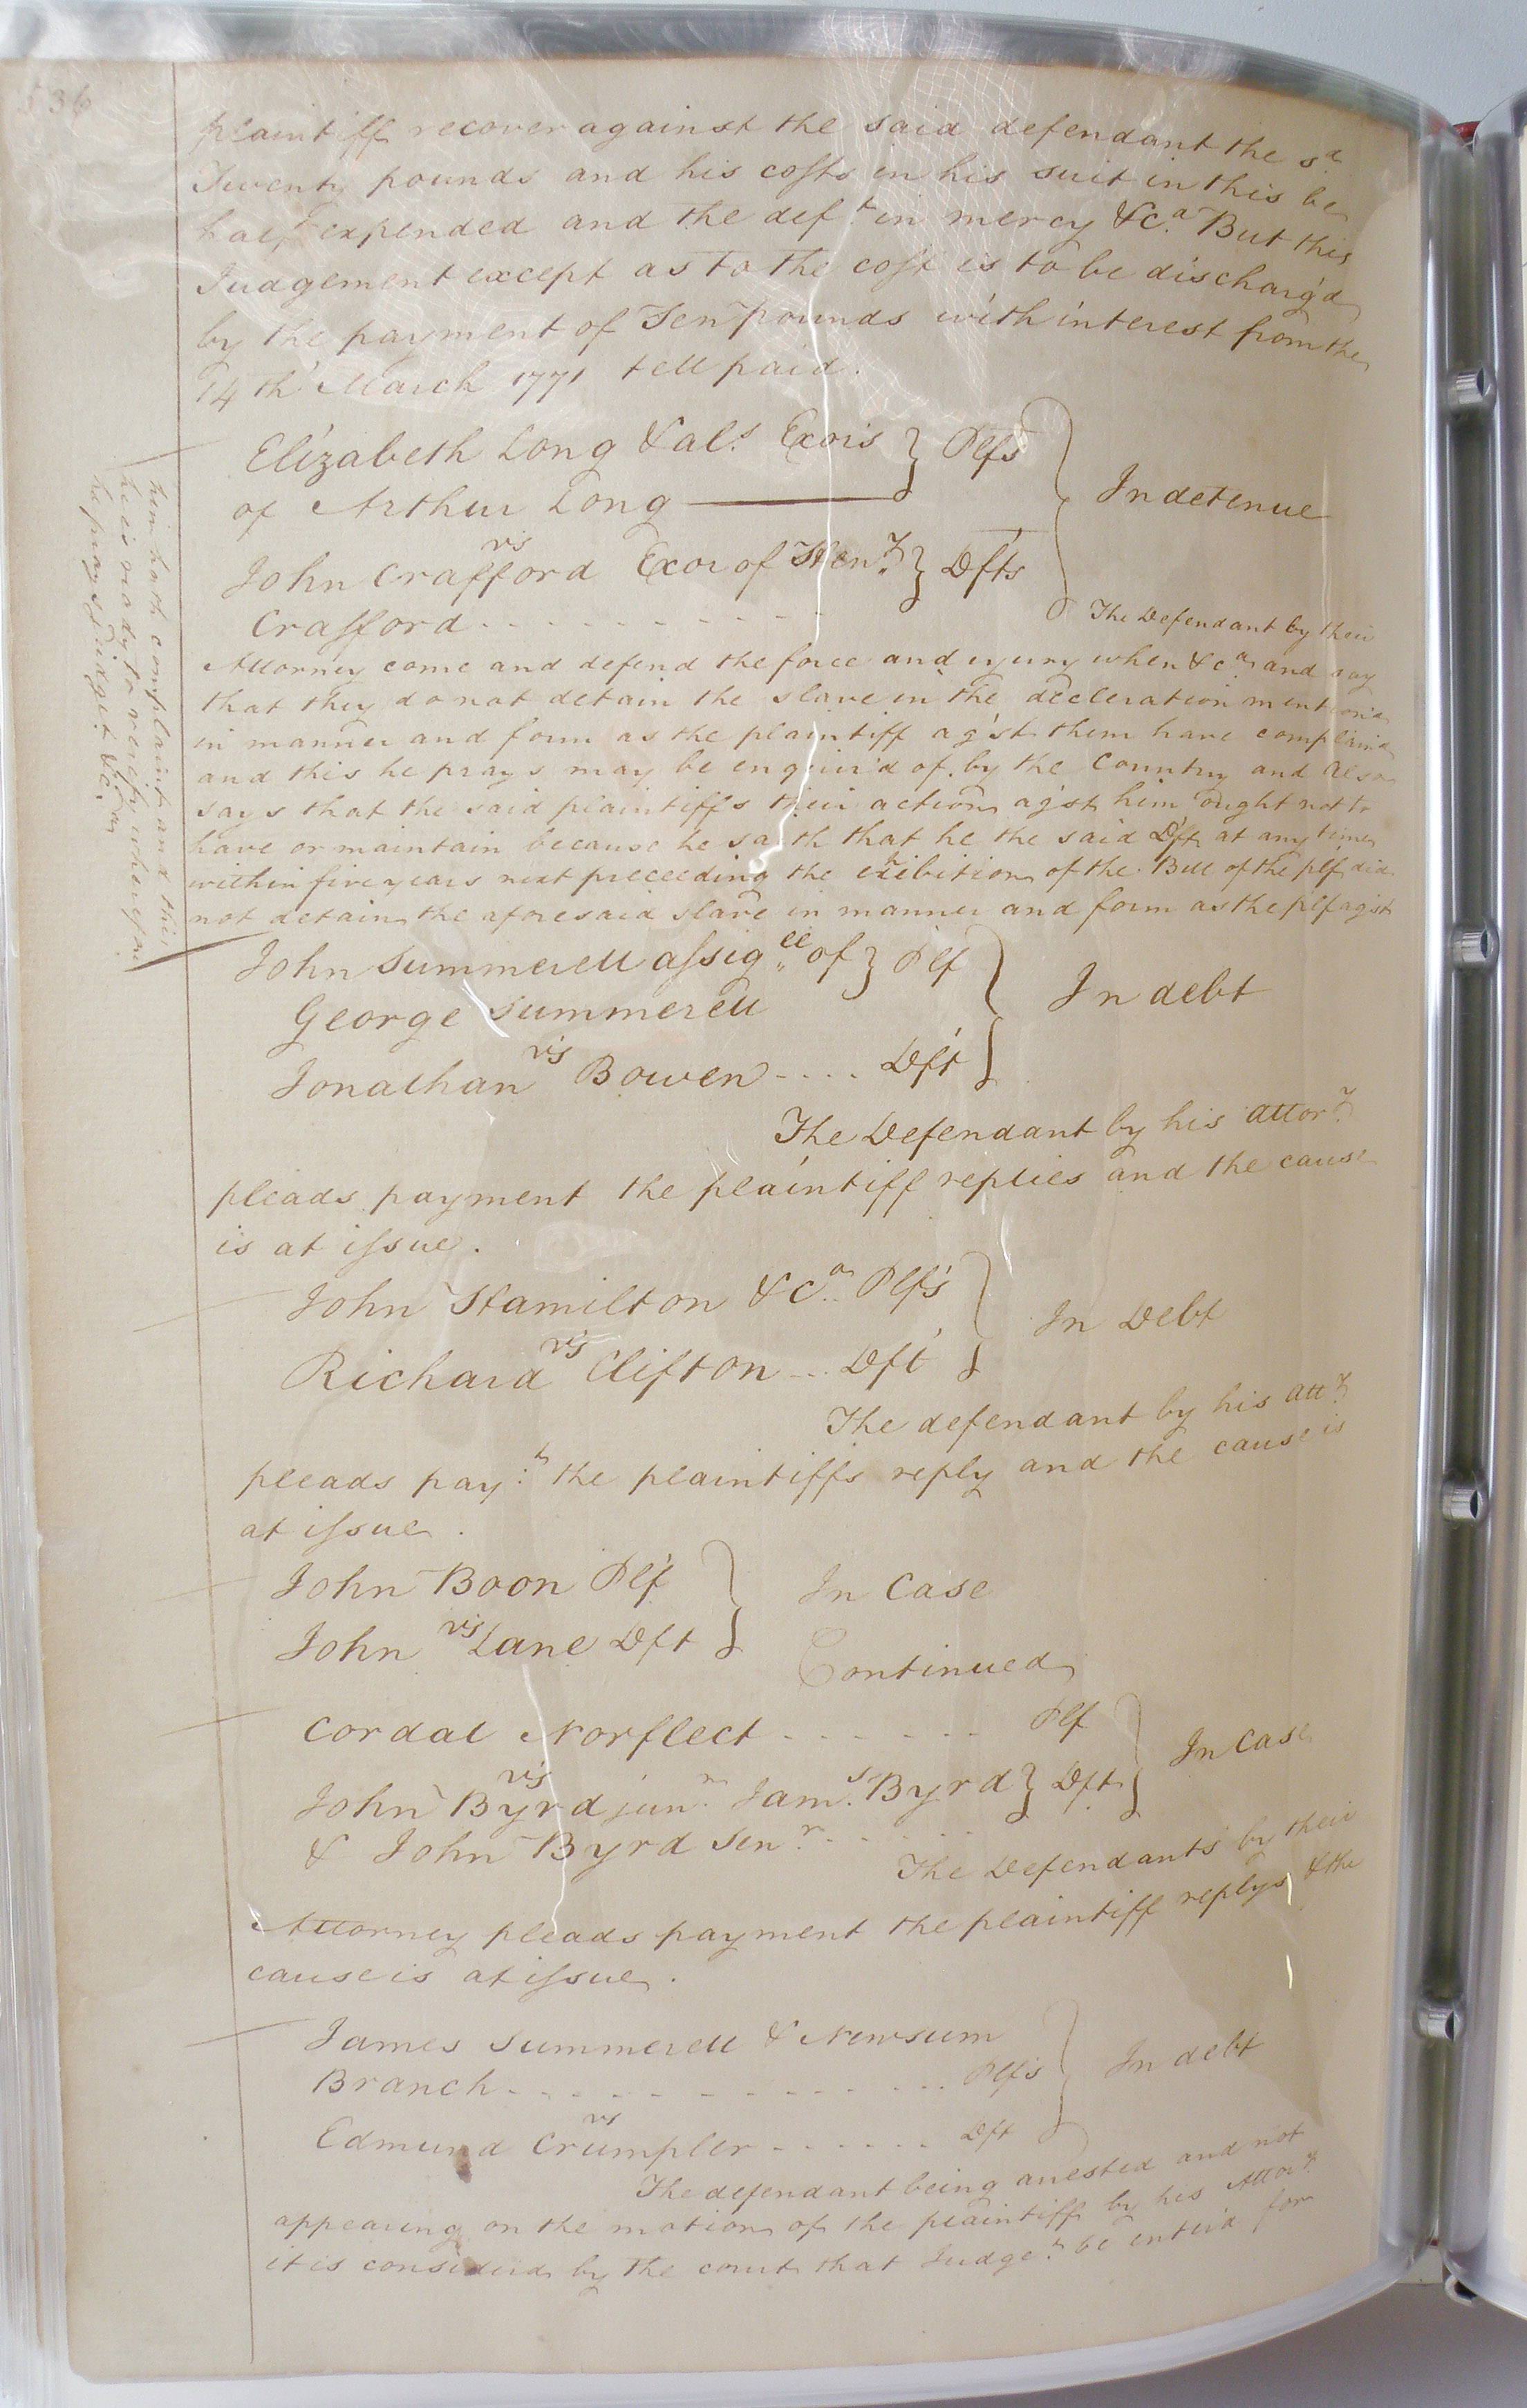 536
plaintiff recover against the said defendant the sd
Twenty pounds and his costs in his suit in this be
half expended and the deft in mercy &ca. But this
Judgement except as to the cost is to be discharg'd
by the payment of Ten pounds with interest from the
14th March 1771 tell paid.
Elizabeth Long & als Exors } Plfs
of Arthur Long
vs
In detenue
John Crafford Exor of Heny } Dfts
Crafford
The Defendant by their
Attorney come and defend the force and injury when &ca and say
that they do not detain the slave in the decleration mention'd
in manner and form as the plaintiff ag'st them have complain'd
and this he prays may be enquir'd of by the Country and also
says that the said plaintiffs their action ag'st him ought not to
have or maintain because he saith that he the said Dft at any time
within five years next preceeding the exhibition of the Bill of the plf did
not detain the aforesaid slave in manner and form as the plf agst
him hath complaind and this
he is ready to verify wherefore
he prays Judget &ca
John Summerell assigee of } Plf
George Summerell
In debt
vs
Jonathan Bowen .... Dft
The Defendant by his attory
pleads payment the plaintiff replies and the cause
is at issue.
John Hamilton & Ca Plfs
vs
In Debt
Richard Clifton ... Dft
The defendant by his atty
pleads payt the plaintiffs reply and the cause is
at issue.
John Boon Plf
In Case
vs
John Lane Dft
Continued
Cordal Norfleet Plf
In Case
vs
John Byrd junr Jams Byrd } Dft
& John Byrd Senr
The Defendants by their
Attorney pleads payment the plaintiff replys & the
cause is at issue.
James Summerell & Newsum
Branch Plfs
In debt
vs
Edmund Crumpler Dft
The defendant being arested and not
appearing on the motion of the plaintiff by his Attory
it is considerd by the court that Judget be enterd for